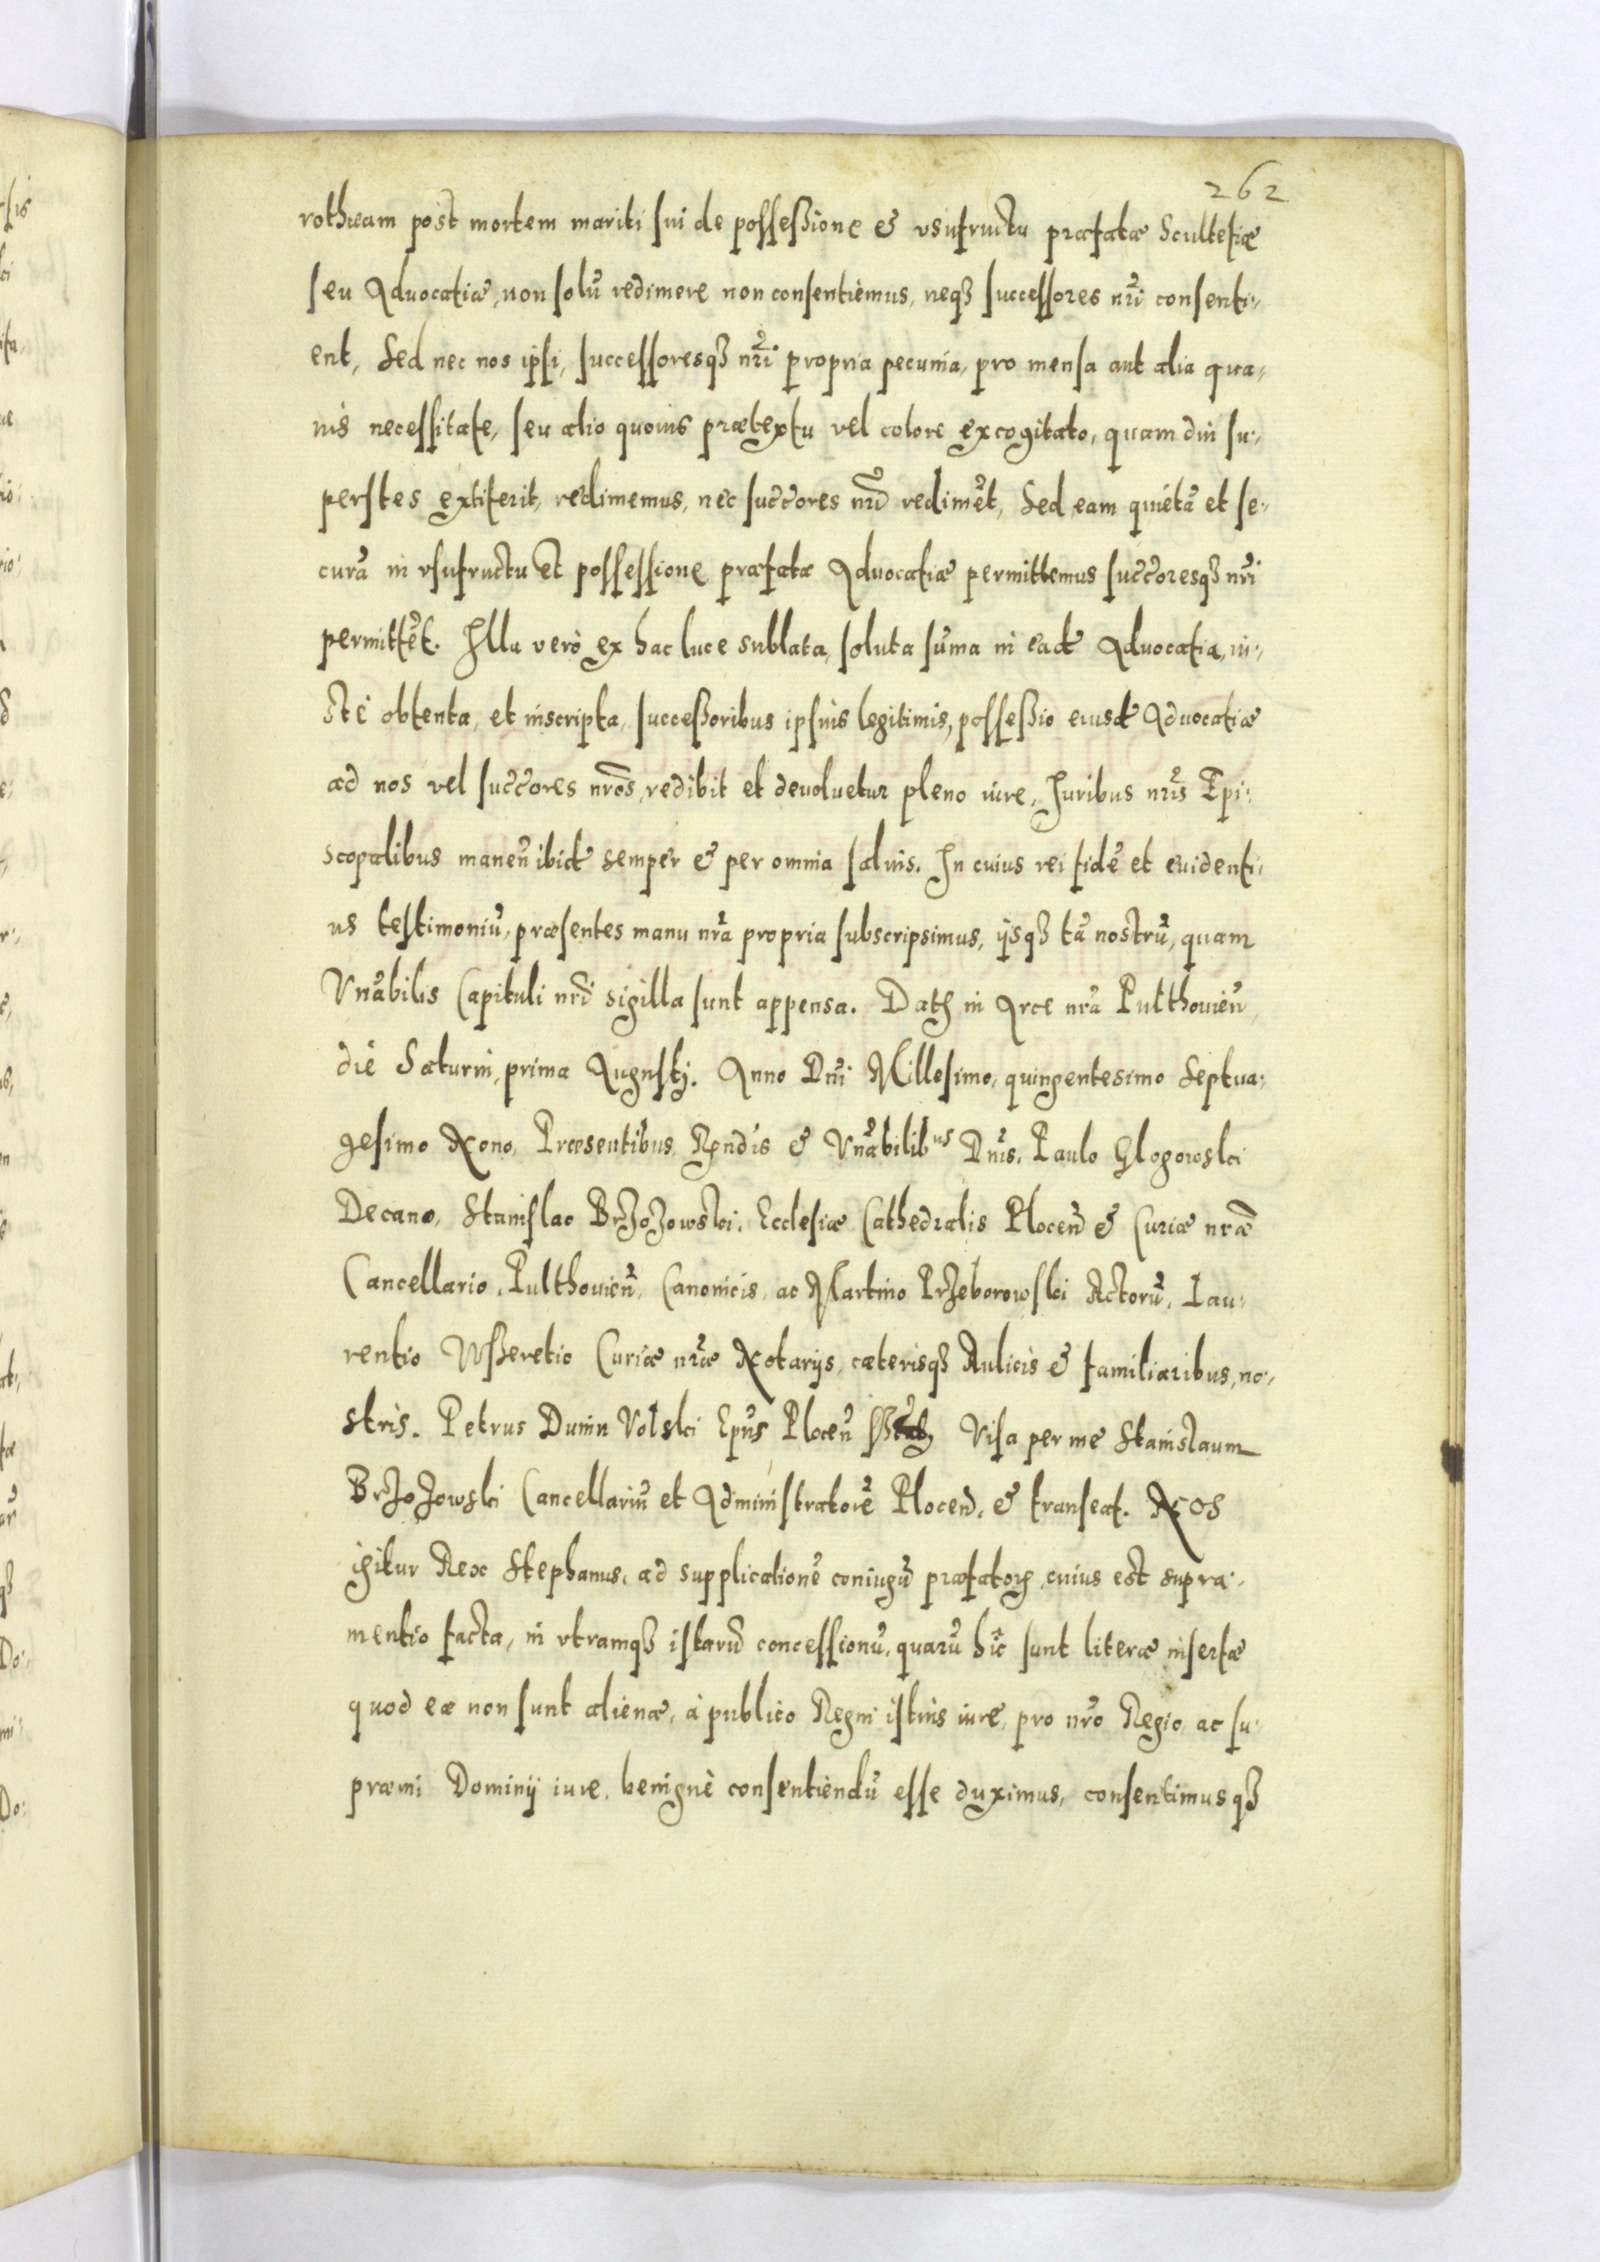 262
rotheam post mortem mariti sui de possessione & vsufructu præfatæ Scultetiæ
seu Aduocatiæ, non solũ redimere non consentiemus, neqȝ successores nr̃i consenti:
ent, Sed nec nos ipsi, successoresqȝ nr̃i propria pecunia, pro mensa aut alia qua:
uis necessitate, seu alio quouis prætextu vel colore excogitato, quam diu su:
perstes extiterit, redimemus, nec succ̃ores nr̃i redimẽt, Sed eam quietã et se:
curã in vsufructu et possessione præfatæ Aduocatiæ permittemus succ̃oresqȝ nr̃i
permittẽt. Illa verò ex hac luce sublata, soluta sũma in eadẽ Aduocatia, iu:
stè obtenta, et inscripta, successoribus ipsius legitimis, possessio eiusdẽ Aduocatiæ
ad nos vel succ̃ores nr̃os, redibit et deuoluetur pleno iure, Iuribus nr̃is Epi:
scopalibus maneñ ibidẽ semper & per omnia saluis. In cuius rei fidẽ et euidenti:
us testimoniũ, præsentes manu nr̃a propria subscripsimus, ijsqȝ tã nostrũ, quam
Vñabilis Capituli nr̃i sigilla sunt appensa. Datꝫ in Arce nr̃a Pulthouieñ,
die Saturni, prima Augusti. Anno Dñi Millesimo, quingentesimo Septua:
gesimo Nono, Præsentibus Rñdis & Vñabilibus Dñis, Paulo Glogowski
Decano, Stanislao Brzozowski, Ecclesiæ Cathedralis Ploceñ & Curiæ nr̃æ
Cancellario, Pulthouieñ, Canonicis, ac Martino Przeborowski Actorũ, Lau:
rentio Wsseretio Curiæ nr̃æ Notarijs, cæterisqȝ Aulicis & familiaribus, no:
stris. Petrus Dunin Volski Ep̃us Ploceñ Visa per me Stanislaum
Brzozowski Cancellariũ et Administratorẽ Ploceñ. & transeat. NOS
igitur Rex Stephanus, ad supplicationẽ coniugũ præfatorꝫ, cuius est supra:
mentio facta, in vtramqȝ istarũ concessionũ, quarũ hîc sunt literæ insertæ
quod eæ non sunt alienæ, à publico Regni istius iure, pro nr̃o Regio ac su:
præmi Dominij iure, benignè consentiendũ esse duximus, consentimusqȝ